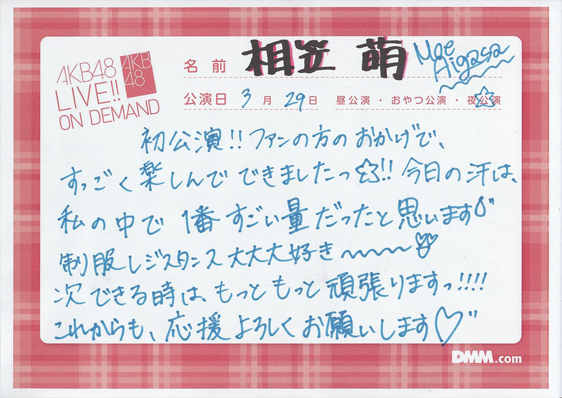 AKB48
LIVE!!
ON DEMAND
AKB
48
名前 相笠 萌 Moe Aigasa
公演日 3月29日 昼公演・おやつ公演・夜公演
初公演!!ファンの方のおかげで、
すっごく楽しんでできましたっ☆!!今日の汗は、
私の中で1番すごい量だったと思います
制服レジスタンス大大大好き〜〜〜♡
次できる時は、もっともっと頑張りますっ!!!!
これからも、応援よろしくお願いします♡"
DMM.com